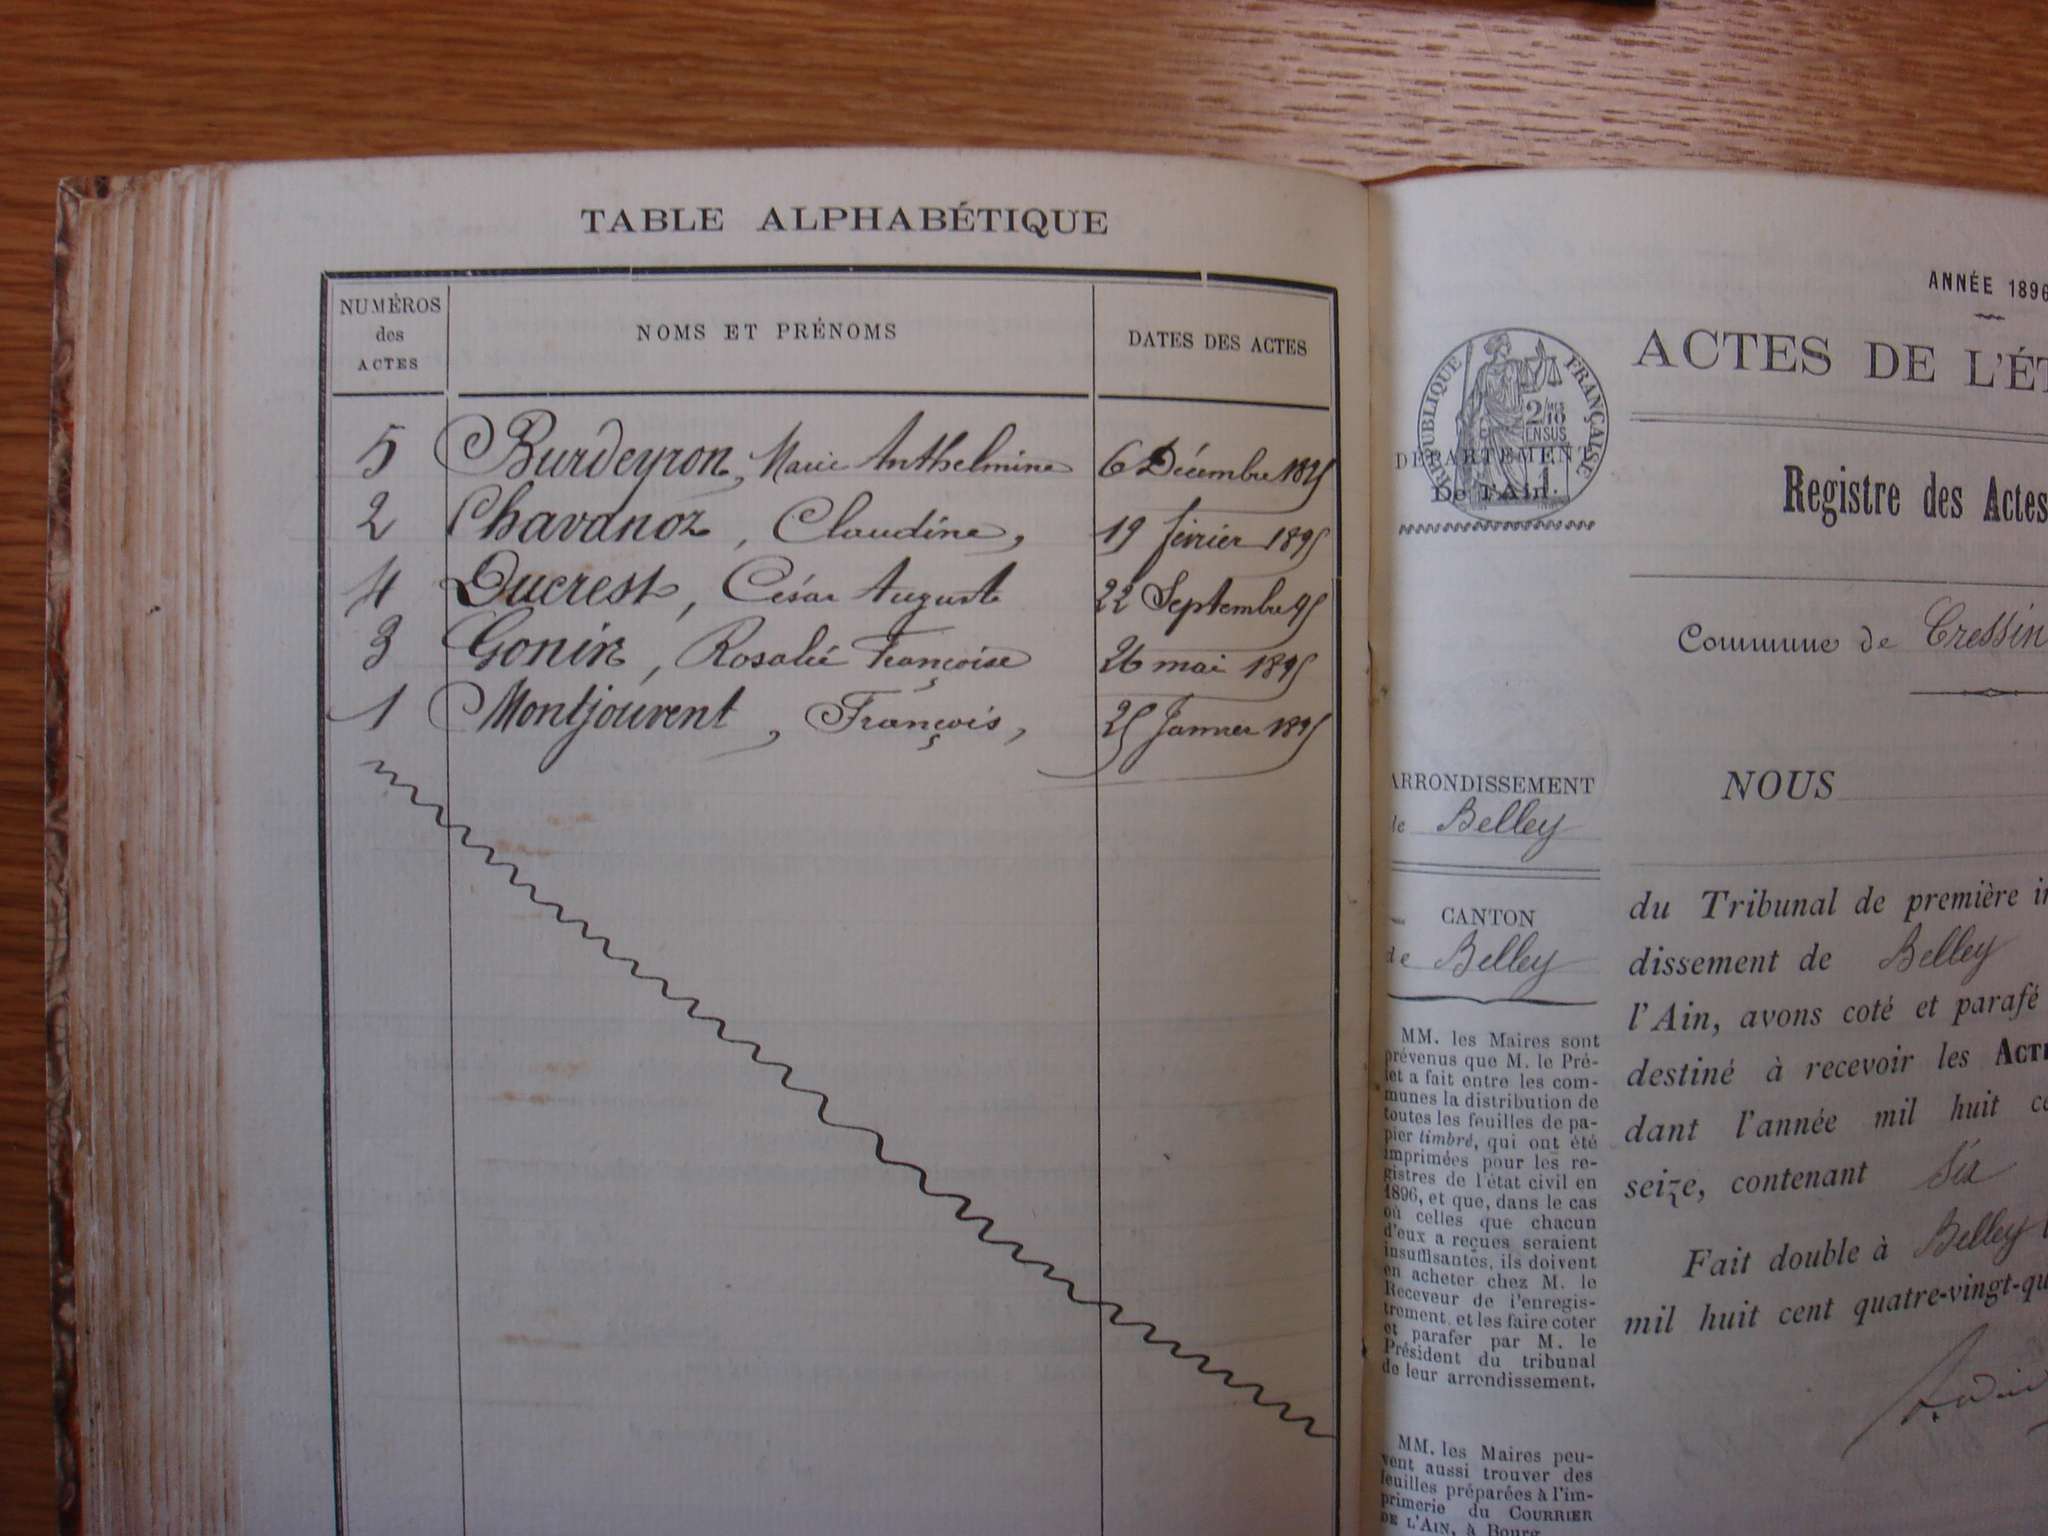 TABLE ALPHABÉTIQUE
NUMÉROS
des
ACTES
NOMS ET PRÉNOMS
DATES DES ACTES
5 Burdeyron, Marie Anthelmine 6 Décembre 1895
2 Chavanoz, Claudine, 19 février 1895
4 Ducrest, César Auguste 22 Septembre 95
3 Gonin, Rosalie Françoise 26 mai 1895
1 Montjouvent, François, 25 Janvier 1895
ANNÉE 1896
ACTES DE L'ÉT
RÉPUBLIQUE FRANÇAISE
2/10
EN SUS
DÉPARTEMENT
De l'Ain.
Registre des Actes
Commune de Cressin
ARRONDISSEMENT
de Belley
NOUS
CANTON
de Belley
du Tribunal de première in
dissement de Belley
l'Ain, avons coté et parafé
destiné à recevoir les ACTE
dant l'année mil huit ce
seize, contenant Six
Fait double à Belley
mil huit cent quatre-vingt-qu
MM. les Maires sont
prévenus que M. le Pré-
fet a fait entre les com-
munes la distribution de
toutes les feuilles de pa-
pier timbré, qui ont été
imprimées pour les re-
gistres de l'état civil en
1896, et que, dans le cas
où celles que chacun
d'eux a reçues seraient
insuffisantes, ils doivent
en acheter chez M. le
Receveur de l'enregis-
trement et les faire coter
et parafer par M. le
Président du tribunal
de leur arrondissement.
MM. les Maires peu-
vent aussi trouver des
feuilles préparées à l'im-
primerie du COURRIER
DE L'AIN, à Bourg